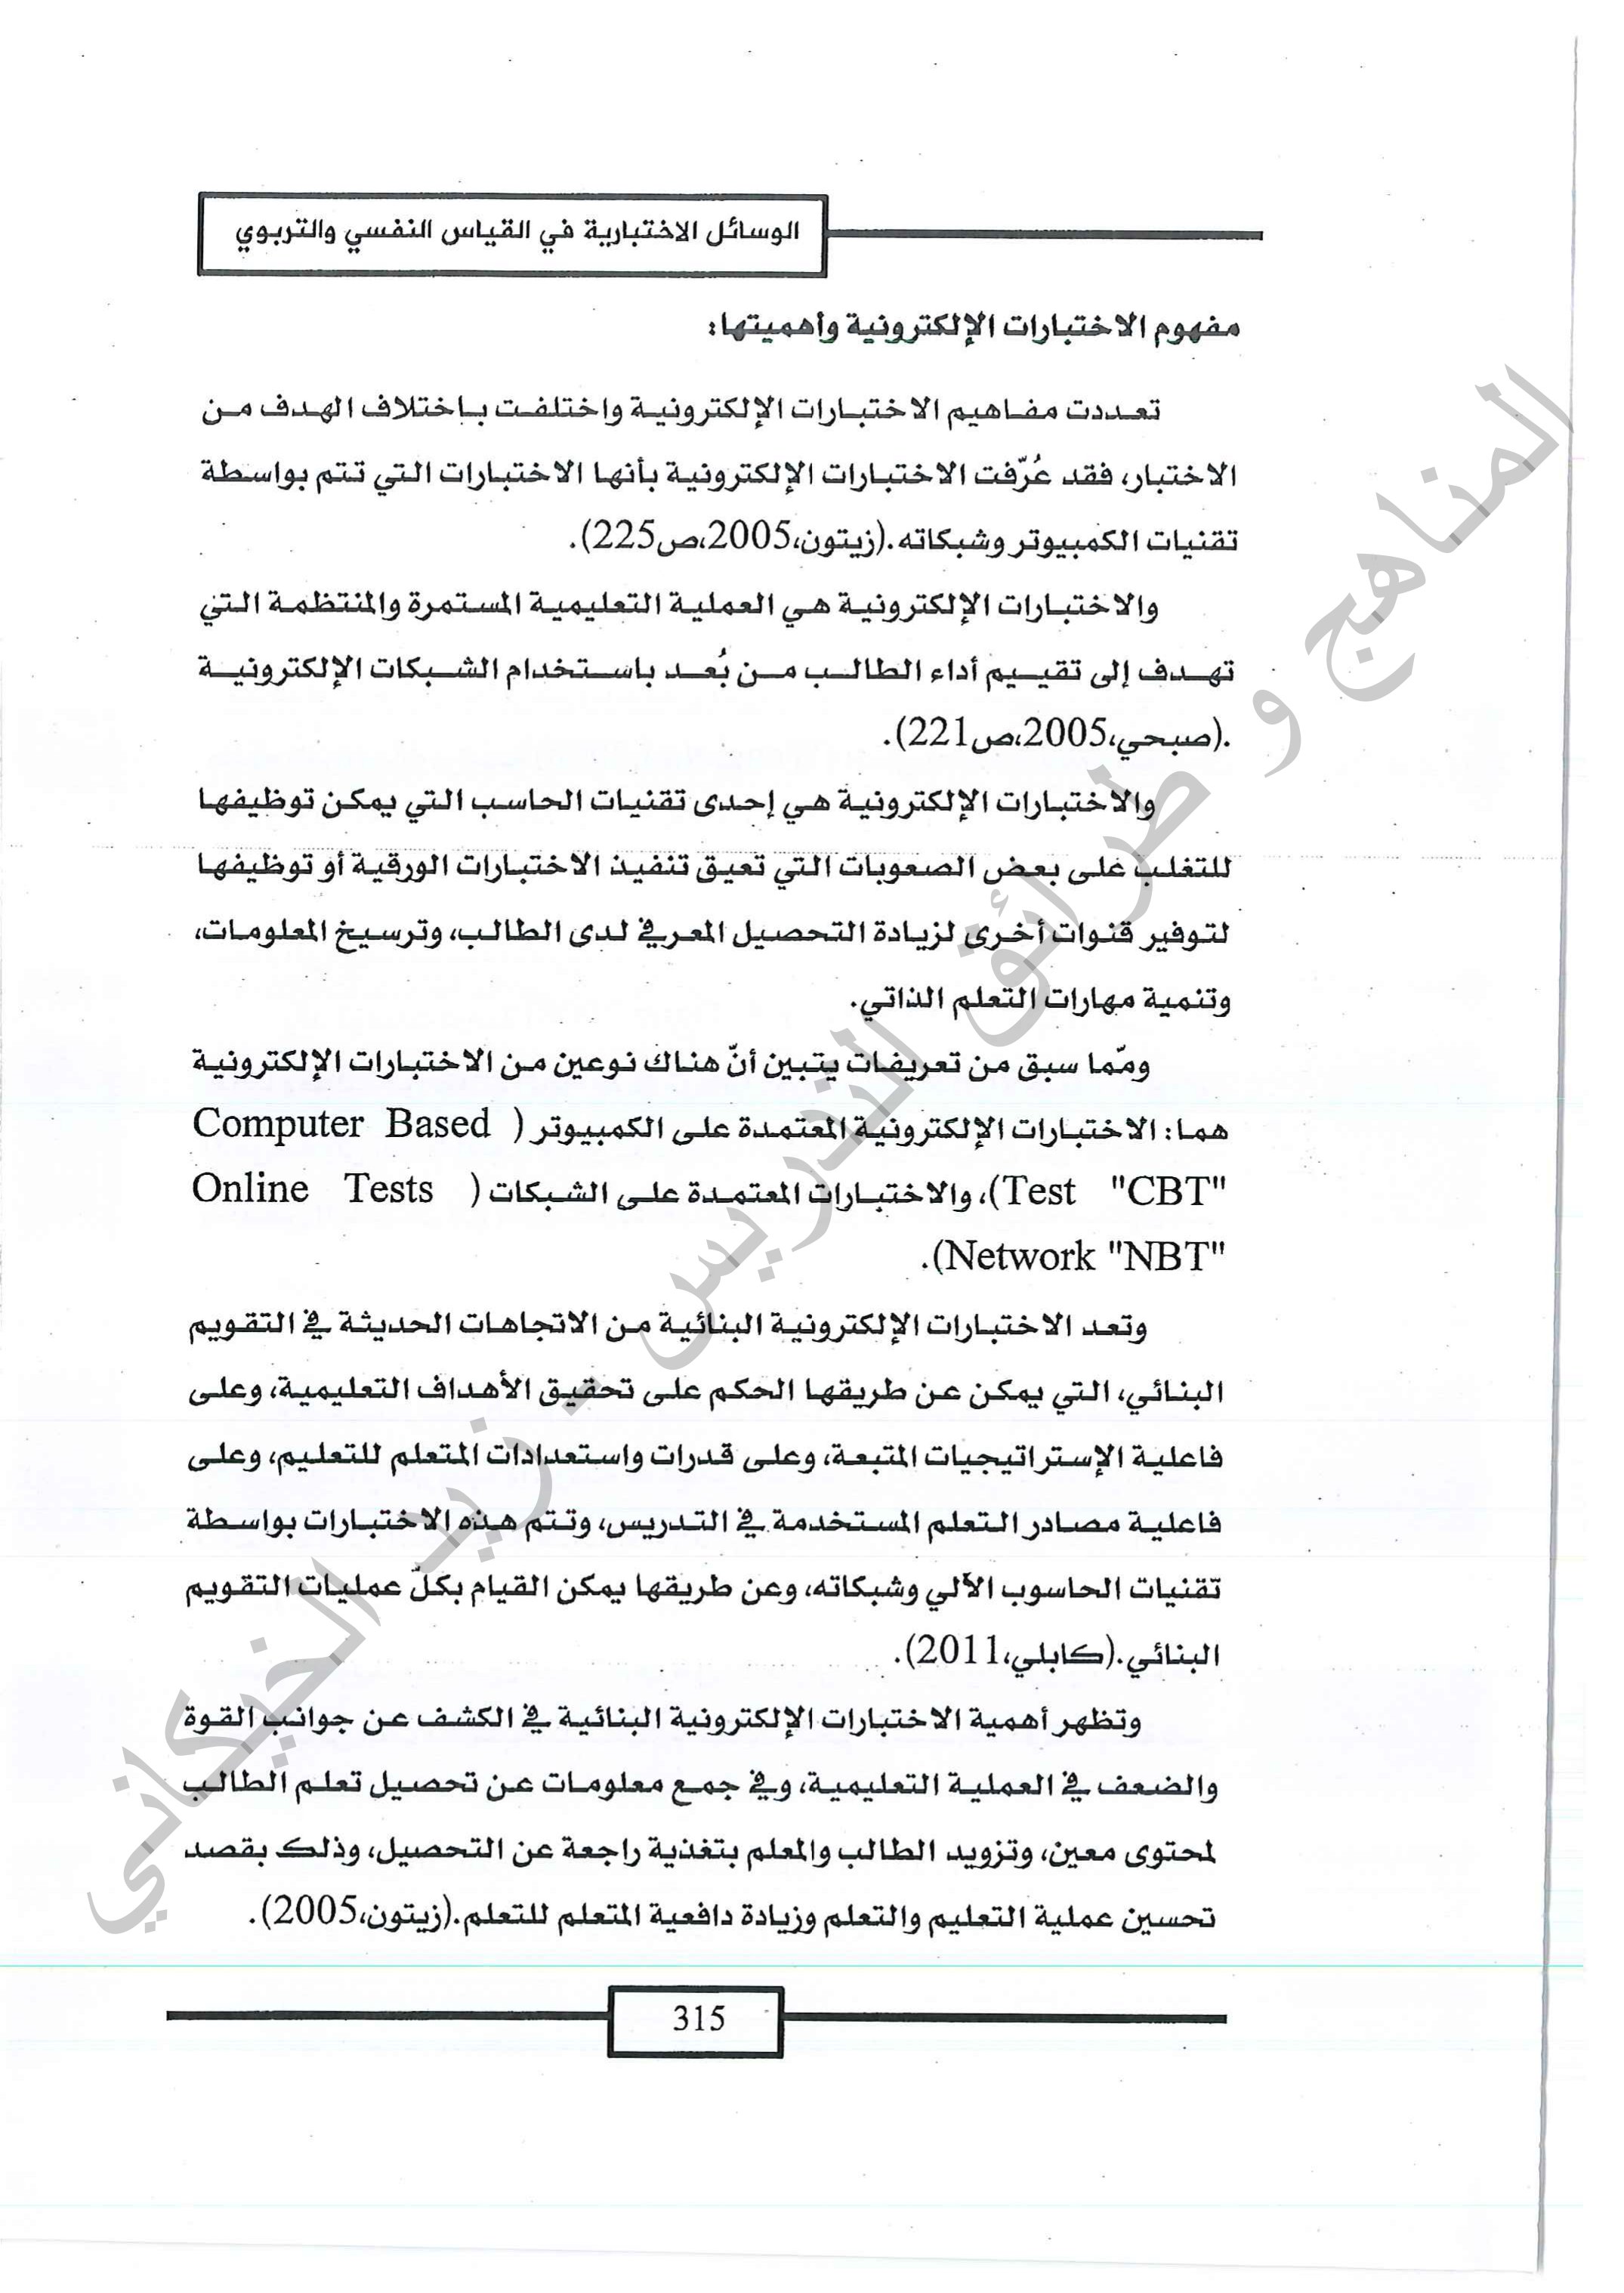 الوسائل الاختبارية في القياس النفسي والتربوي
مفهوم الاختبارات الإلكترونية وأهميتها:
تعددت مفاهيم الاختبارات الإلكترونية واختلفت باختلاف الهدف من
الاختبار، فقد عُرّفت الاختبارات الإلكترونية بأنها الاختبارات التي تتم بواسطة
تقنيات الكمبيوتر وشبكاته.(زيتون،2005،ص225).
والاختبارات الإلكترونية هي العملية التعليمية المستمرة والمنتظمة التي
تهدف إلى تقييم أداء الطالب من بُعد باستخدام الشبكات الإلكترونية
.(صبحي،2005،ص221).
والاختبارات الإلكترونية هي إحدى تقنيات الحاسب التي يمكن توظيفها
للتغلب على بعض الصعوبات التي تعيق تنفيذ الاختبارات الورقية أو توظيفها
لتوفير قنوات أخرى لزيادة التحصيل المعرفي لدى الطالب، وترسيخ المعلومات،
وتنمية مهارات التعلم الذاتي.
وممّا سبق من تعريفات يتبين أنّ هناك نوعين من الاختبارات الإلكترونية
هما: الاختبارات الإلكترونية المعتمدة على الكمبيوتر ( Computer Based
Test "CBT")، والاختبارات المعتمدة على الشبكات ( Online Tests
Network "NBT").
وتعد الاختبارات الإلكترونية البنائية من الاتجاهات الحديثة في التقويم
البنائي، التي يمكن عن طريقها الحكم على تحقيق الأهداف التعليمية، وعلى
فاعلية الإستراتيجيات المتبعة، وعلى قدرات واستعدادات المتعلم للتعليم، وعلى
فاعلية مصادر التعلم المستخدمة في التدريس، وتتم هذه الاختبارات بواسطة
تقنيات الحاسوب الآلي وشبكاته، وعن طريقها يمكن القيام بكلّ عمليات التقويم
البنائي.(كابلي،2011).
وتظهر أهمية الاختبارات الإلكترونية البنائية في الكشف عن جوانب القوة
والضعف في العملية التعليمية، وفي جمع معلومات عن تحصيل تعلم الطالب
لمحتوى معين، وتزويد الطالب والمعلم بتغذية راجعة عن التحصيل، وذلك بقصد
تحسين عملية التعليم والتعلم وزيادة دافعية المتعلم للتعلم.(زيتون،2005).
315
المناهج و طرائق التدريس - زيد الخيكاني